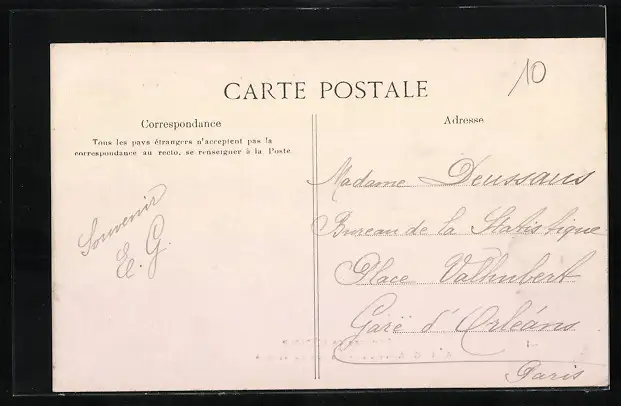 10
CARTE POSTALE
Correspondance
Tous les pays étrangers n'acceptent pas la
correspondance au recto, se renseigner à la Poste
Souvenir
E. G.
Adresse
Madame Deussaus
Bureau de la Statistique
Place Valhubert
Gare d'Orléans
Paris